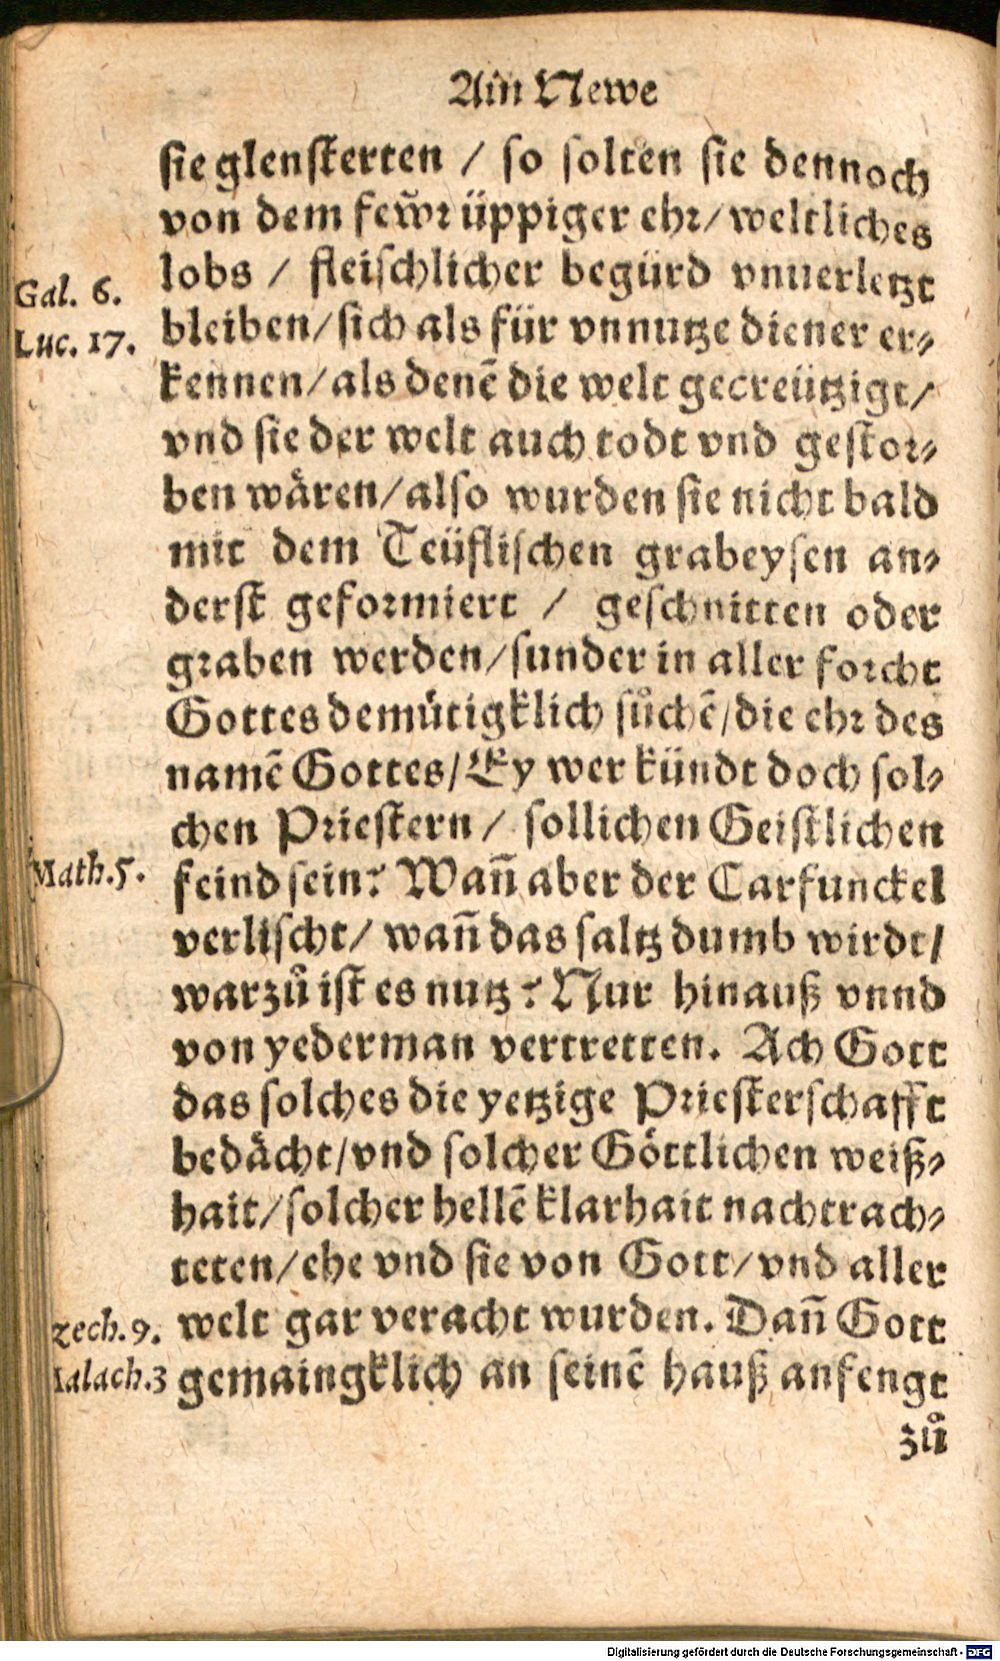 Ain Newe
sie glensterten / so solten sie dennoch
von dem fewr üppiger ehr/weltliches
lobs / fleischlicher begürd vnuerletzt
Gal. 6.
bleiben/sich als für vnnutze diener er-
Luc. 17.
kennen/als denē die welt gecreützigt/
vnd sie der welt auch todt vnd gestor-
ben wären/also wurden sie nicht bald
mit dem Teüflischen grabeysen an-
derst geformiert / geschnitten oder
graben werden/sunder in aller forcht
Gottes demütigklich sůchē/die ehr des
namē Gottes/Ey wer kündt doch sol-
chen Priestern / sollichen Geistlichen
Math.5.
feind sein? Wañ aber der Carfunckel
verlischt/ wañ das saltz dumb wirdt/
warzů ist es nutz? Nur hinauß vnnd
von yederman vertretten. Ach Gott
das solches die yetzige Priesterschafft
bedächt/vnd solcher Göttlichen weiß-
hait/solcher hellē klarhait nachtrach-
teten/ehe vnd sie von Gott/vnd aller
zech.9.
welt gar veracht wurden. Dañ Gott
Malach.3
gemaingklich an seinē hauß anfengt
zů
Digitalisierung gefördert durch die Deutsche Forschungsgemeinschaft - DFG